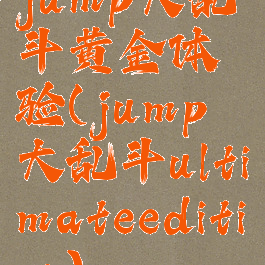 jump大乱
斗黄金体
验(jump
大乱斗ulti
mateediti